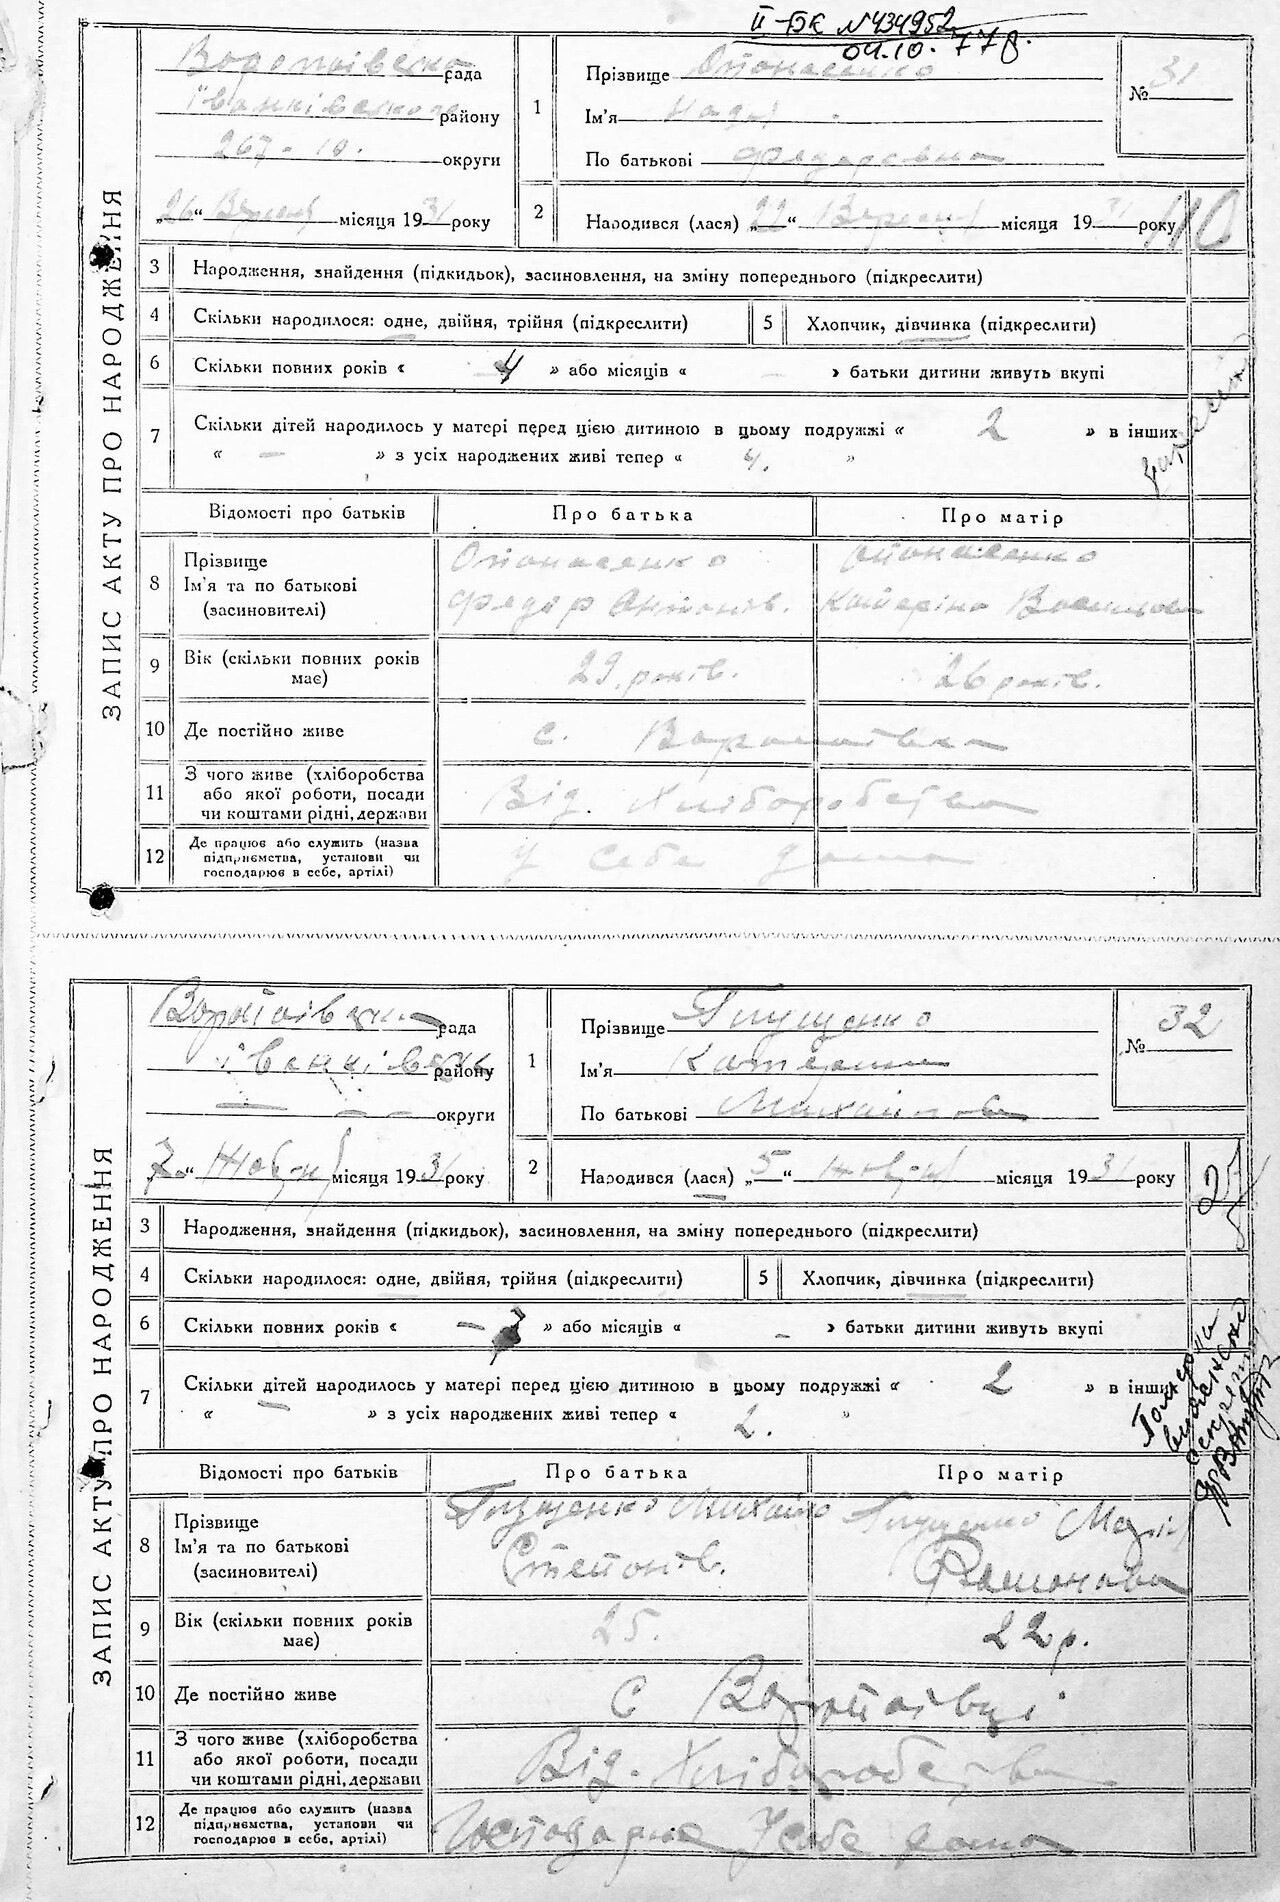 II-БК №434952
04.10.77р.
ЗАПИС АКТУ ПРО НАРОДЖЕННЯ
рада
району
267-10. округи
„26“ Вересня місяця 1931 року
1
Прізвище Опонасенко
Ім'я
По батькові Федоровна
№ 31
2
Народився (лася) „22“ Вересня місяця 1931 року
3 Народження, знайдення (підкидьок), засиновлення, на зміну попереднього (підкреслити)
4 Скільки народилося: одне, двійня, трійня (підкреслити)
5 Хлопчик, дівчинка (підкреслити)
6 Скільки повних років « 4 » або місяців « – » батьки дитини живуть вкупі
7 Скільки дітей народилось у матері перед цією дитиною в цьому подружжі « 2 » в інших
« – » з усіх народжених живі тепер « »
Відомості про батьків Про батька Про матір
8 Прізвище
Ім'я та по батькові
(засиновителі)
Опонасенко
Федор Антонів.
Опонасенко
Катеріна
9 Вік (скільки повних років має) 29. років. 26 років.
10 Де постійно живе с. Воропаївка
11 З чого живе (хліборобства
або якої роботи, посади
чи коштами рідні, держави
Від. Хліборобства
12 Де працює або служить (назва
підприємства, установи чи
господарює в себе, артілі)
У себе дома
ЗАПИС АКТУ ПРО НАРОДЖЕННЯ
рада
району
— — — округи
„7“ Жовтня місяця 1931 року
1
Прізвище Глущенко
Ім'я Катерина
По батькові
№ 32
2
Народився (лася) „5“ Жовтня місяця 1931 року
25
3 Народження, знайдення (підкидьок), засиновлення, на зміну попереднього (підкреслити)
4 Скільки народилося: одне, двійня, трійня (підкреслити)
5 Хлопчик, дівчинка (підкреслити)
6 Скільки повних років « » або місяців « – » батьки дитини живуть вкупі
7 Скільки дітей народилось у матері перед цією дитиною в цьому подружжі « 2 » в інших
« – » з усіх народжених живі тепер « 2. »
Відомості про батьків Про батька Про матір
8 Прізвище
Ім'я та по батькові
(засиновителі)
Глущенко Михайло
Степонів.
Глущенко Марія
9 Вік (скільки повних років має) 25. 22 р.
10 Де постійно живе с Воропаївці
11 З чого живе (хліборобства
або якої роботи, посади
чи коштами рідні, держави
Від. Хліборобства
12 Де працює або служить (назва
підприємства, установи чи
господарює в себе, артілі)
Господарює У себе дома